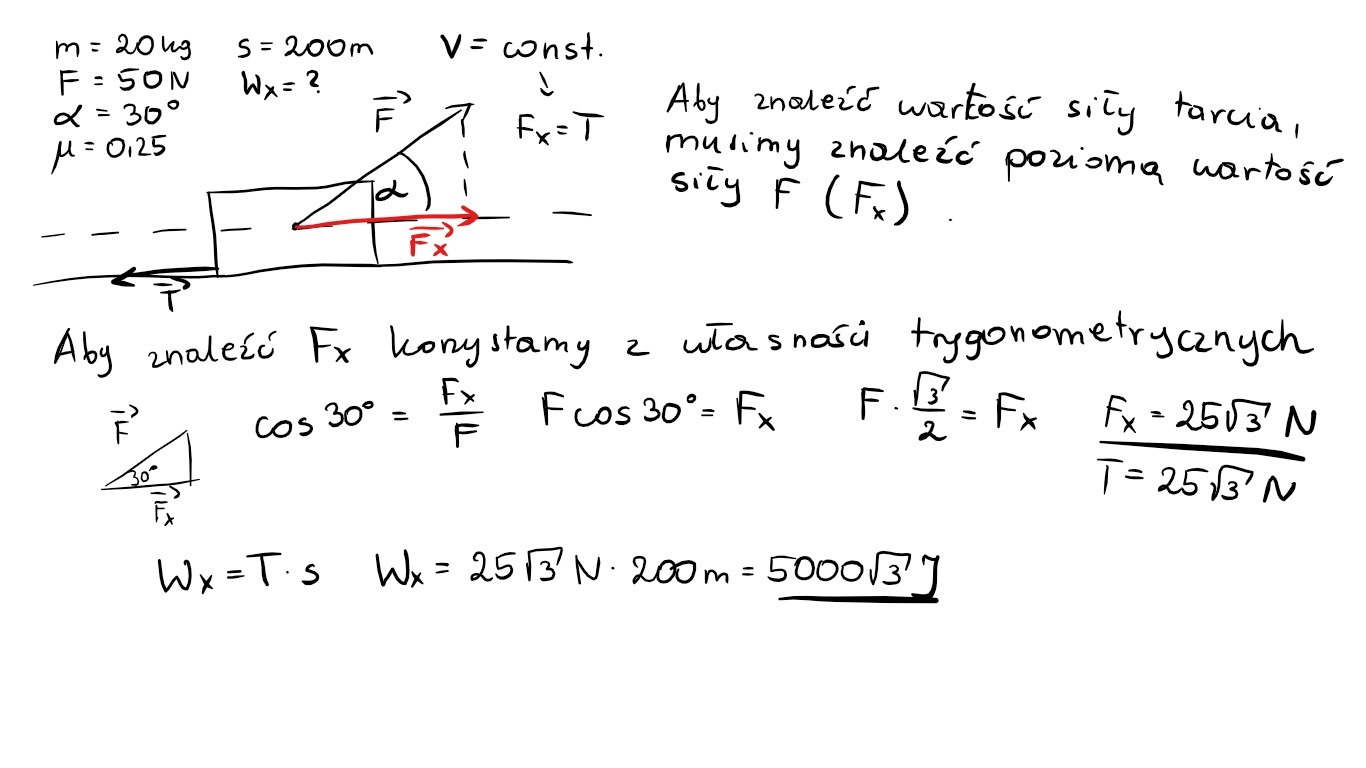 m = 20 kg s = 200 m V = const.
F = 50 N Wx = ?
α = 30°
μ = 0,25
F
Fx = T
α
Fx
T
Aby znaleźć wartość siły tarcia,
musimy znaleźć poziomą wartość
siły F (Fx)
Aby znaleźć Fx korzystamy z własności trygonometrycznych
F
30°
Fx
cos 30° = Fx/F F cos 30° = Fx F · √3/2 = Fx Fx = 25√3 N
T = 25√3 N
Wx = T · s Wx = 25√3 N · 200 m = 5000√3 J